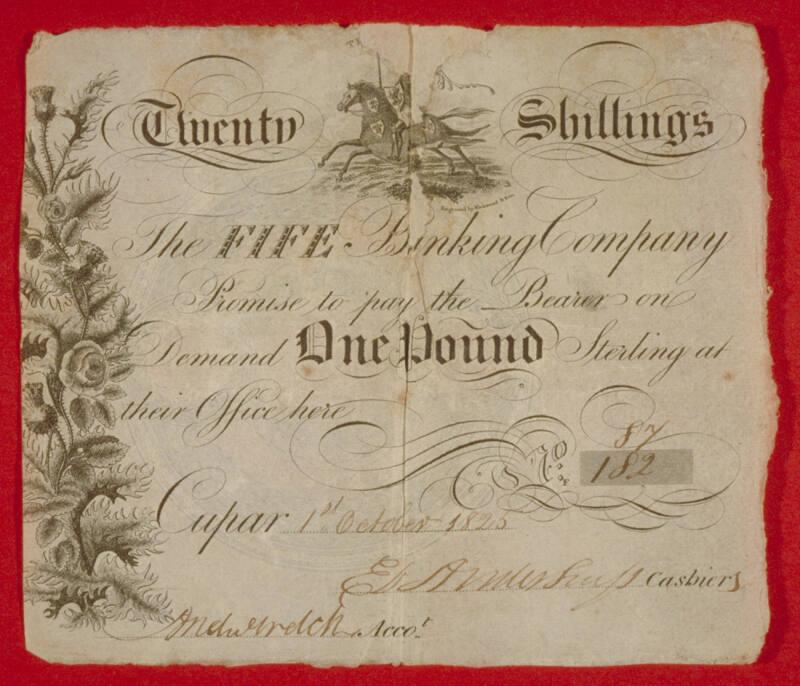 Twenty Shillings
The FIFE Banking Company
Promise to pay the Bearer on
Demand One Pound Sterling at
their Office here
87
No. 182
Cupar 1st October 1825
Cashiers
Accot.